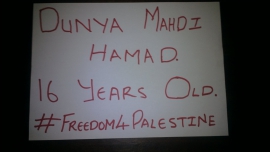 DUNYA MAHDI
HAMAD.
16 YEARS OLD.
#FREEDOM4PALESTINE